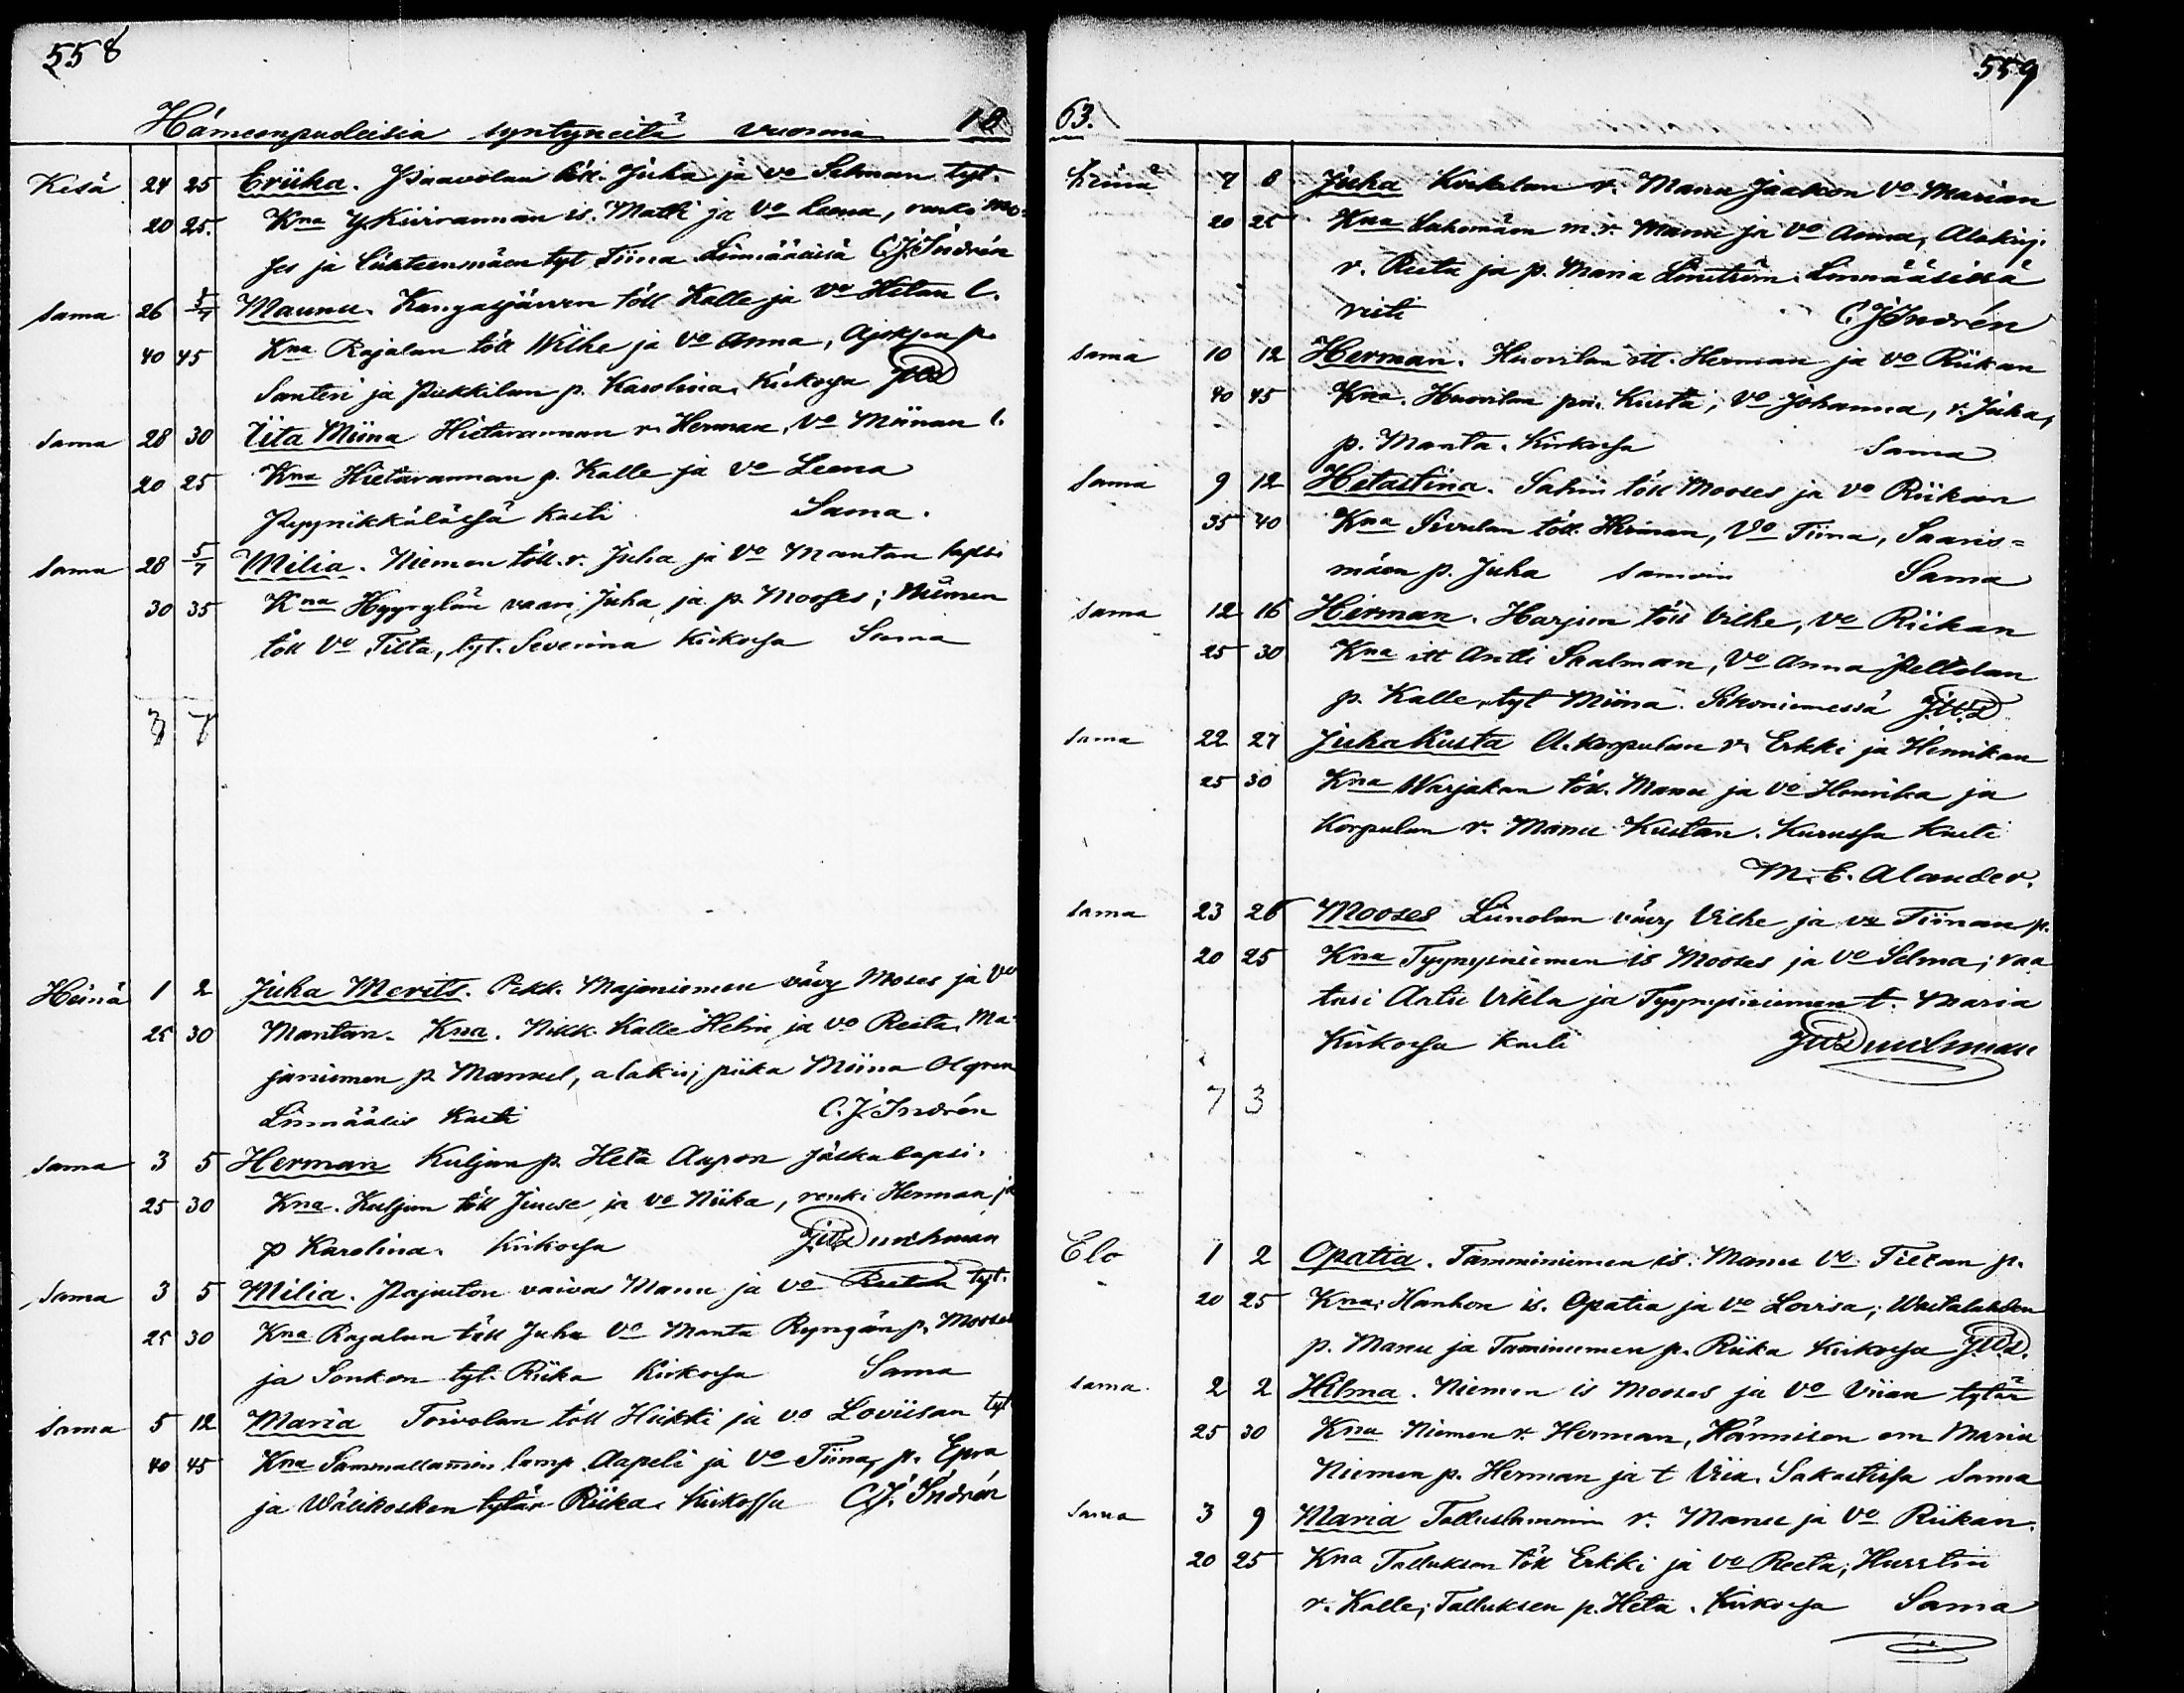 558
Hämeenpuoleisia syntyneitä vuonna 18
Kesä 24 25 Eriika. Paavolan töll. Juha ja vo Selman tyt.
20 25. Kna Y. Kiirannan is. Matti ja vo Leena, renki Moo-
ses ja tyt Tiina Linnääisiä C.J. Indrén
sama 26 5/7 Maunu. Kangasjärven töll Kalle ja vo Hetan l.
40 45 Kna Rajalan töll Wilhe ja vo Anna, p.
Santeri ja Pukkilan p. Karolina. Kirkossa JWD
sama 28 30 Iita Miina Hietarannan r. Herman, vo Miinan l.
20 25 Kna Hietarannan p. Kalle ja vo Leena
Pyynikkälässä kasti Sama.
sama 28 5/7 Milia. Niemen töll. r. Juha ja vo Mantan lapsi
30 35 Kna Hyyrylän vaari Juha ja p. Mooses; Niemen
töll vo Tilta, tyt. Severiina Kirkossa Sama
3 7
Heinä 1 2 Juha Merits. Pekk. Majaniemen vävy Moses ja vo
25 30 Mantan. Kna. Nikk. Kalle Helin ja vo Reeta. Ma-
janiemen p. Manuel, alakirj piika Miina
Linnäälis Kasti C.J. Indrén
sama 3 5 Herman Kuljun p. Heta Aapon jäska lapsi.
25 30 Kna. Kuljun töll Juuse ja vo Niika, renki Herman ja
p Karolina. Kirkossa JWDurchman
sama 3 5 Milia. Pajuston vaivas Manu ja vo Reetan tyt.
25 30 Kna Rajalan töll Juha vo Manta p. Mooses
ja Sonkon tyt. Riika Kirkossa Sama
sama 5 12 Maria Toivolan töll Heikki ja vo Loviisan tyt
40 45 Kna Sammallammin lamp. Aapeli ja vo Tiina, p. Epra
ja Wälikosken tytär Riika. Kirkossa C.J. Indrén
559
63.
Heinä 7 8 Juha Koskelan r. Manu Jaakon vo Marian
20 25 Kna m.r. Manu ja vo Anna, Alakirj.
r. Reeta ja p. Maria Linström. Linnääsissä
risti C.J. Indrén
sama 10 12 Herman. Huovilan itt. Herman ja vo Riikan
40 45 Kna. Huovilan pri. Kusta, vo Johanna, r. Juha,
p. Manta. Kirkossa Sama
sama 9 12 Hetastina. Salmi töll Mooses ja vo Riikan
35 40 Kna Sivulan töll. Heiman, vo Tiina, Saaris=
mäen p. Juha samoin Sama
sama 12 16 Herman. Harjun töll Vilhe, vo Riikan
25 30 Kna itt Antti Saalman, vo Anna Peltolan
p. Kalle, tyt Miina. Sikoniemessä JWD
sama 22 27 Juha Kusta A. Korpulan r. Erkki ja Henrikan
25 30 Kna Warjakan töll. Manu ja vo Henrika ja
Korpulan r. Manu Kustan. Kurussa kasti
M.E. Alander.
sama 23 26 Mooses Liinolan vävy Vilhe ja vo Tiinan p.
20 25 Kna Tyynysniemen is Mooses ja vo Selma; raa
tari Antu Vikla ja Tyynysniemen t. Maria
Kirkossa kasti JWDurchman
7 3
Elo 1 2 Opatia. Tamminiemen is. Manu vo Tiltan p.
20 25 Kna: Hanhon is. Opatia ja vo Lovisa; Wastalahden
p. Manu ja Taminiemen p. Riika Kirkossa JWD.
sama 2 2 Hilma. Niemen is Mooses ja vo Viian tytär
25 30 Kna Niemen r. Herman, Hännisen em Maria
Niemen p. Herman ja t Viia. Sakastissa Sama
sama 3 9 Maria Talluslammin r. Manu ja vo Riikan.
20 25 Kna Talluksen töll Erkki ja vo Reeta; Hurstin
r. Kalle; Talluksen p. Heta. Kirkossa Sama